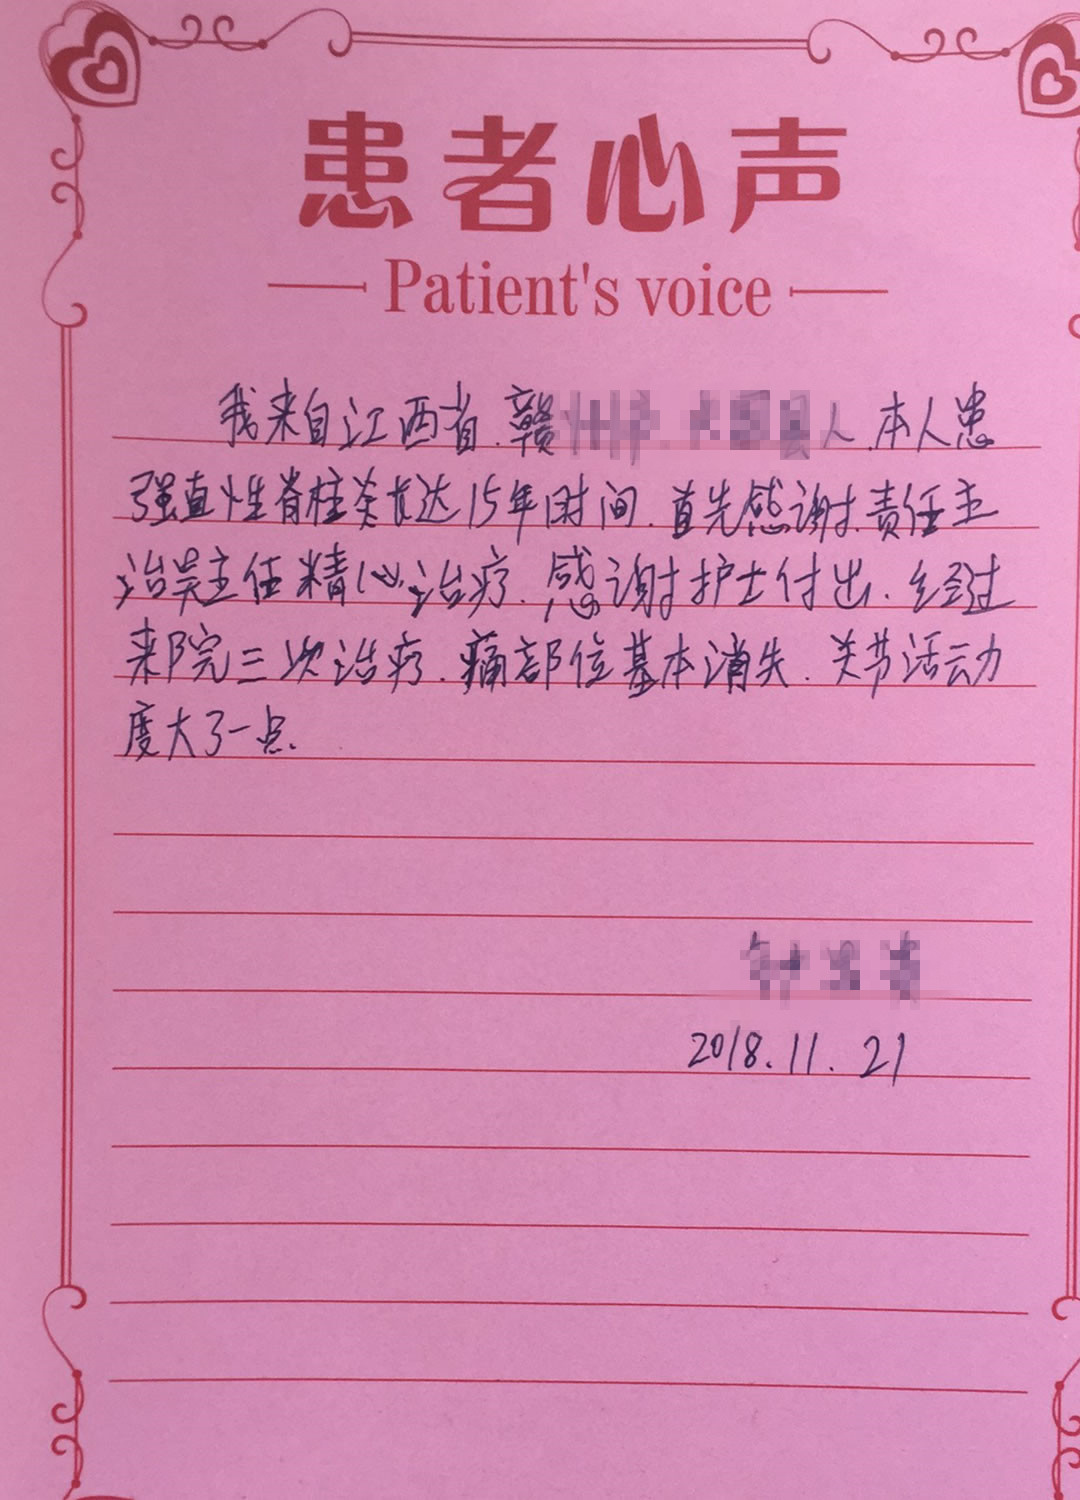 患者心声
Patient's voice
我来自江西省.赣 人.本人患
强直性脊柱炎长达15年时间.首先感谢.责任主
治吴主任精心治疗.感谢护士付出.经过
来院三次治疗.痛部位基本消失.关节活动
度大了一点.
2018.11.21